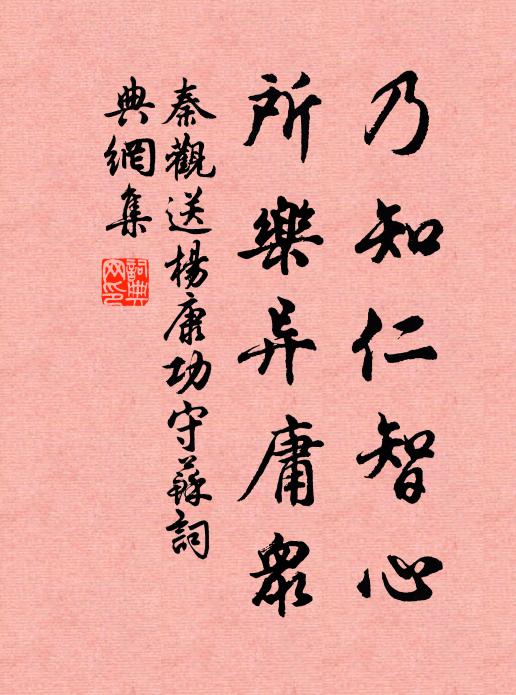 乃知仁智心
所樂异庸眾
秦觀送楊康功守蘇詞
典網集
詞典網印